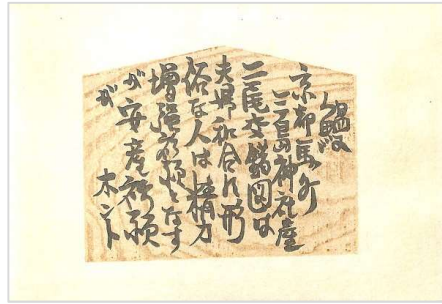 鰻
京都馬町
三島神社産
二尾交図は
夫婦和合の形
俗な人は精力
増強祈願となす
が安産祈願
が ホント